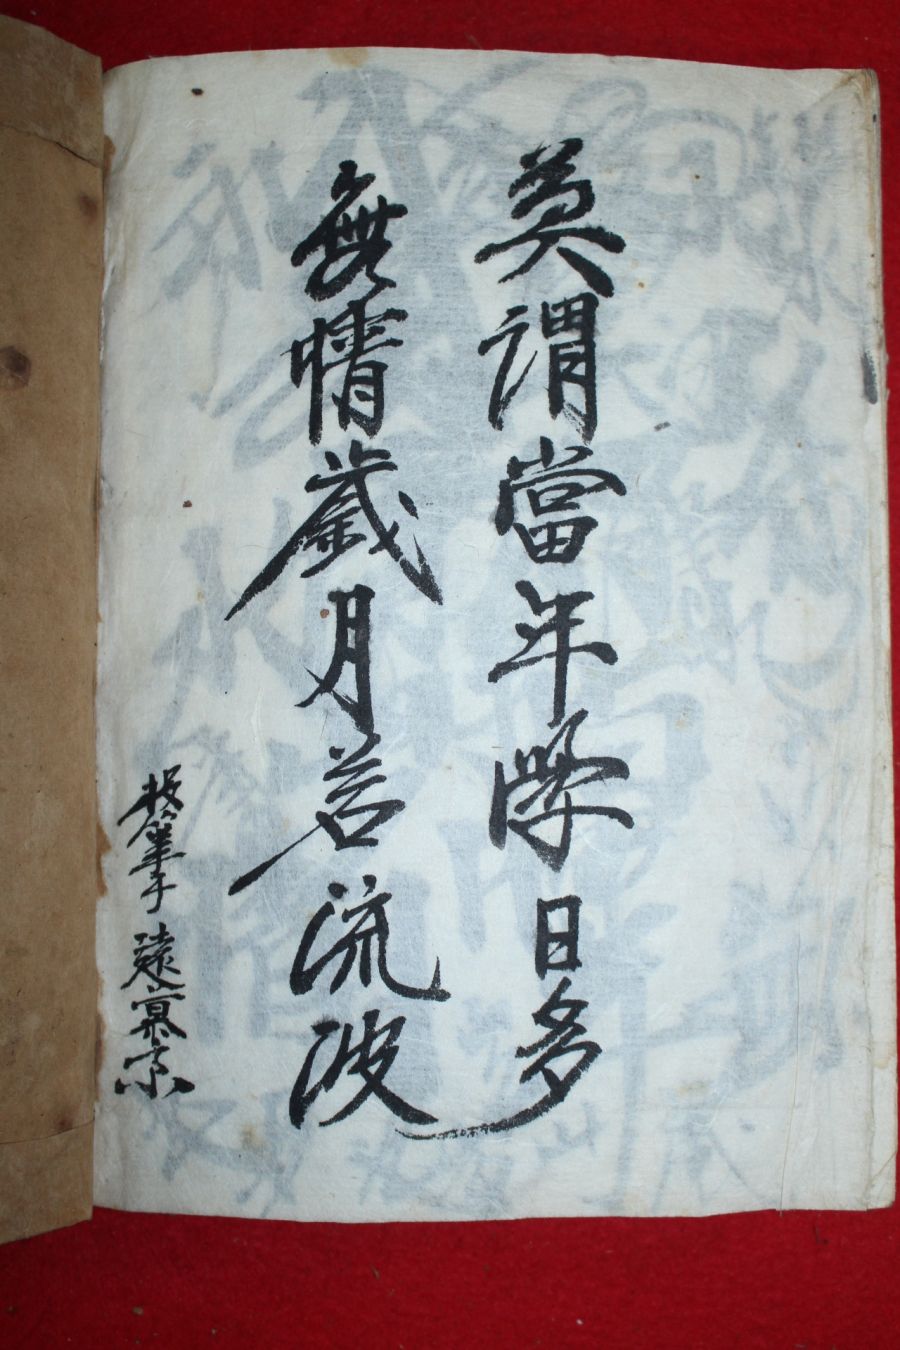 莫謂當年學日多
無情歲月若流波
投筆子